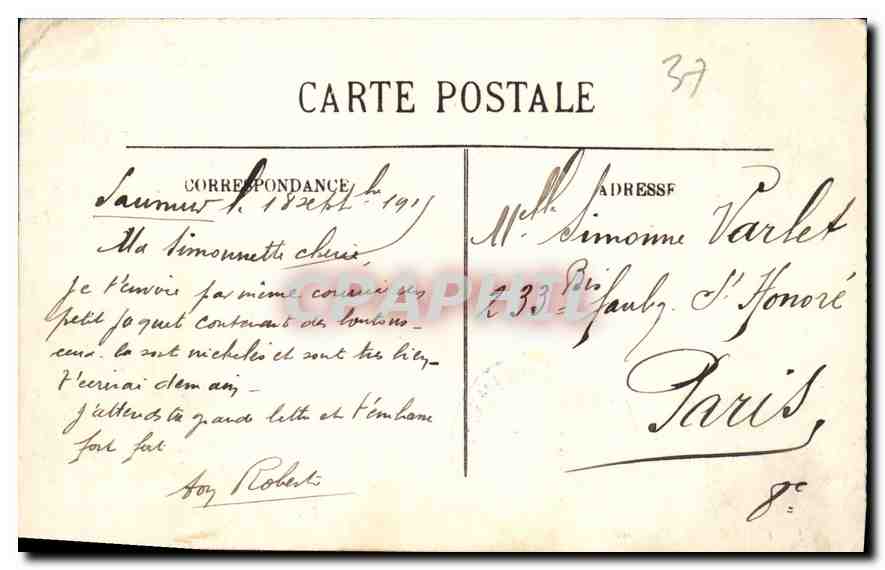 37
CARTE POSTALE
CORRESPONDANCE
Saumur le 18 septbre 191
Ma Simonnette chérie,
Je t'envoie par même courrier des
petit paquet contenant des boutons
ceux-la sont nichelés et sont très bien
t'ecrirai demain
J'attends ta grande lettre et t'embrasse
fort fort
ton Robert
ADRESSE
Melle Simonne Varlet
233 Bis Faubg St Honoré
Paris,
8e
CPAPHIL